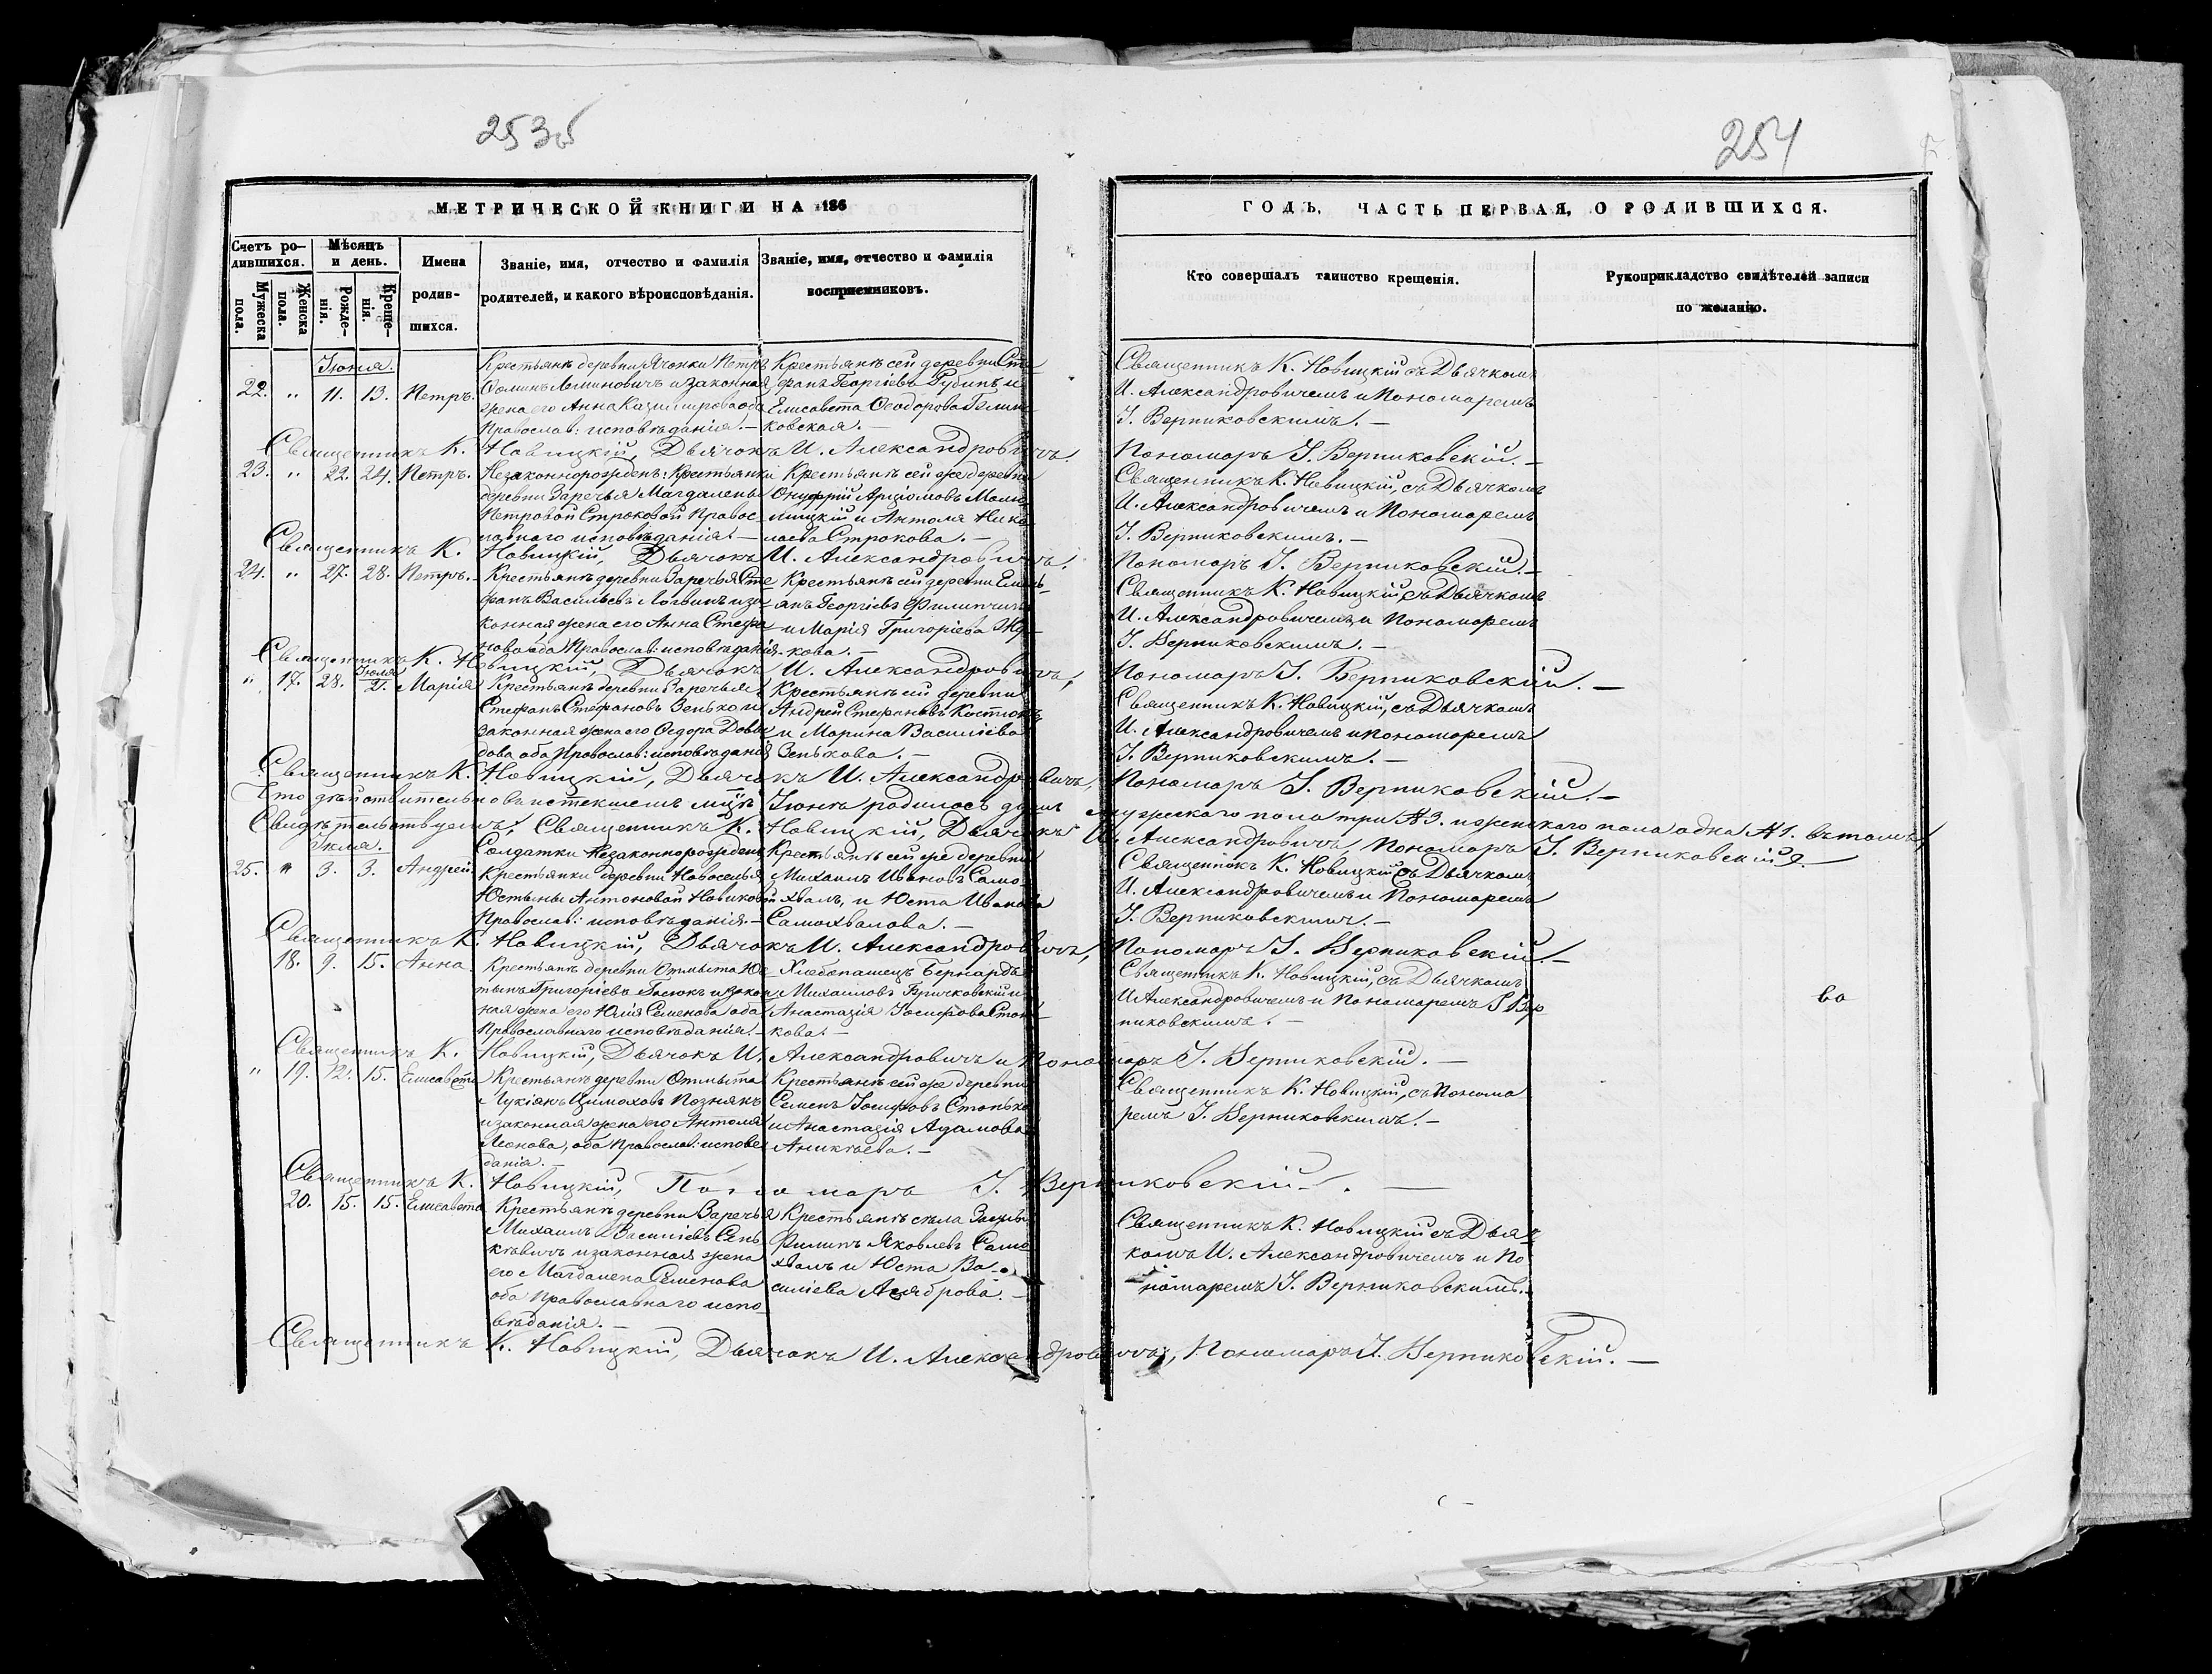 253б
254
МЕТРИЧЕСКОЙ КНИГИ НА 186
ГОДЪ, ЧАСТЬ ПЕРВАЯ, О РОДИВШИХСЯ.
Счетъ ро-
дившихся.
Мужеска пола.
Женска пола.
Мѣсяцъ
и день.
Рожде-
нія.
Креще-
нія.
Имена
родив-
шихся.
Званіе, имя, отчество и фамилія
родителей, и какого вѣроисповѣданія.
Званіе, имя, отчество и фамилія
воспріемниковъ.
Кто совершалъ таинство крещенія.
Рукоприкладство свидѣтелей записи
по желанію.
Іюня.
22. " 11. 13. Петръ.
Крестьянъ деревни Петръ
и законная
жена его Анна Казимірова оба
Православ: исповѣданія.-
Крестьянъ сей деревни Сте
фанъ Георгіевъ и
Елисавета Ѳеодорова
ковская.-
Священникъ К. Новицкій съ Дьячкомъ
И. Александровичемъ и Пономаремъ
І. Верниковскимъ.-
Священникъ К. Новицкій, Дьячокъ И. Александровичъ Пономарь І. Верниковскій.-
23. " 22. 24. Петръ.
Незаконнорожден: Крестьянки
деревни Заречья Магдалены
Петровой Строковой Правос
лавнаго исповѣданія.-
Крестьянъ сей же деревни
Онуфрій
и Антоля Нико
лаева Строкова.-
Священникъ К. Новицкій, съ Дьячкомъ
И. Александровичемъ и Пономаремъ
І. Верниковскимъ.-
Священникъ К. Новицкій, Дьячокъ И. Александровичъ, Пономарь І. Верниковскій.-
24. " 27. 28. Петръ.-
Крестьянъ деревни Заречья Сте
фанъ Васильевъ и за
конная жена его Анна Стефа
нова оба Православ: исповѣданія.
Крестьянъ сей деревни Емель
янъ Георгіевъ
и Марія Григоріева
кова.-
Священникъ К. Новицкій, съ Дьячкомъ
И. Александровичемъ и Пономаремъ
І. Верниковскимъ.-
Священникъ К. Новицкій, Дьячокъ И. Александровичъ, Пономарь І. Верниковскій.-
Іюля
" 17. 28. 2. Марія
Крестьянъ деревни Заречья
Стефанъ Стефановъ Зенько и
законная жена его Ѳедора Давы
дова оба Православ: исповѣданія
Крестьянъ сей деревни
Андрей Стефановъ Костюкъ
и Марина Василіева
Зенькова.-
Священникъ К. Новицкій, съ Дьячкомъ
И. Александровичемъ и Пономаремъ
І. Верниковскимъ.-
Священникъ К. Новицкій, Дьячокъ И. Александровичъ, Пономарь І. Верниковскій.-
Что дѣйствительно въ истекшемъ мцѣ Іюнѣ родилось душъ мужескаго пола три №3. и женскаго пола одна №1. въ томъ
Свидѣтельствуемъ: Священникъ К. Новицкій, Дьячокъ И. Александровичъ, Пономарь І. Верниковскій.-
Іюля.
25. " 3. 3. Андрей
Солдатки Незаконнорожден:
Крестьянки деревни Новоселья
Юстыны Антоновой Новиковой
Православ: исповѣданія.-
Крестьянъ сей же деревни
Михаилъ Ивановъ Само
хвалъ, и Юста Иванова
Самохвалова.-
Священникъ К. Новицкій съ Дьячкомъ
И. Александровичемъ и Пономаремъ
І. Верниковскимъ.-
Священникъ К. Новицкій, Дьячокъ И. Александровичъ, Пономарь І. Верниковскій.-
18. 9. 15. Анна.
Крестьянъ деревни Отмыта Юс
тынъ Григоріевъ и закон
ная жена его Юлія Семенова оба
Православнаго исповѣданія.-
Хлебопашецъ Бернардъ
Михаиловъ и
Анастазія Іосифова Стань
кова.-
Священникъ К. Новицкій, съ Дьячкомъ
И. Александровичемъ и Пономаремъ І Вер
никовскимъ.-
во
Священникъ К. Новицкій, Дьячокъ И. Александровичъ и Пономарь І. Верниковскій.-
" 19. 12. 15. Елисавета
Крестьянъ деревни Отмыта
Лукіянъ Цимоховъ Познякъ
и законная жена его Антоля
Леонова, оба Православ: испове
данія.-
Крестьянъ сей же деревни
Семенъ Іосифовъ Станько
и Анастазія Адамова
Аникѣева.-
Священникъ К. Новицкій, съ Понома
ремъ І. Верниковскимъ.-
Священникъ К. Новицкій, Пономарь І. Верниковскій.-
20. 15. 15. Елисавета
Крестьянъ деревни Заречья
Михаилъ Василіевъ Сень
кѣвичъ и законная жена
его Магдалена Семенова
оба Православнаго испо
вѣданія.-
Крестьянъ села
Филипъ Яковлевъ Само
хвалъ и Юста Ва
силіева
Священникъ К. Новицкій съ Дьяч
комъ И. Александровичемъ и По
номаремъ І. Верниковскимъ.
Священникъ К. Новицкій, Дьячокъ И. Александровичъ, Пономарь І. Верниковскій.-